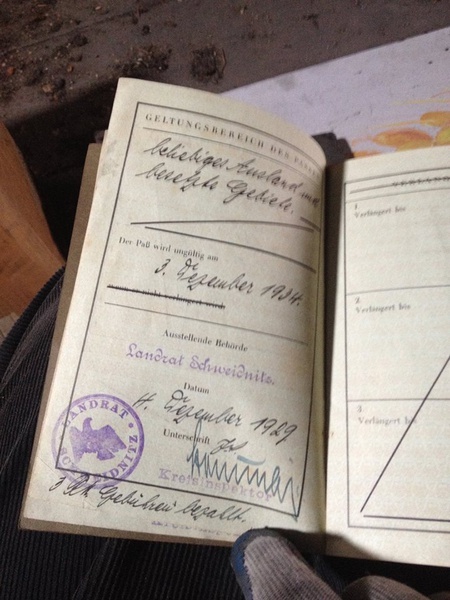 GELTUNGSBEREICH DES PASSES
beliebiges Ausland und
besetzte Gebiete.
Der Paß wird ungültig am
3. Dezember 1934.
wenn er nicht verlängert wird
Ausstellende Behörde
Landrat Schweidnitz.
Datum
4. Dezember 1929
Unterschrift
Kreisinspektor
LANDRAT
SCHWEIDNITZ
3 RM Gebühren bezahlt.
1
Verlängert bis
2.
Verlängert bis
3
Verlängert bis